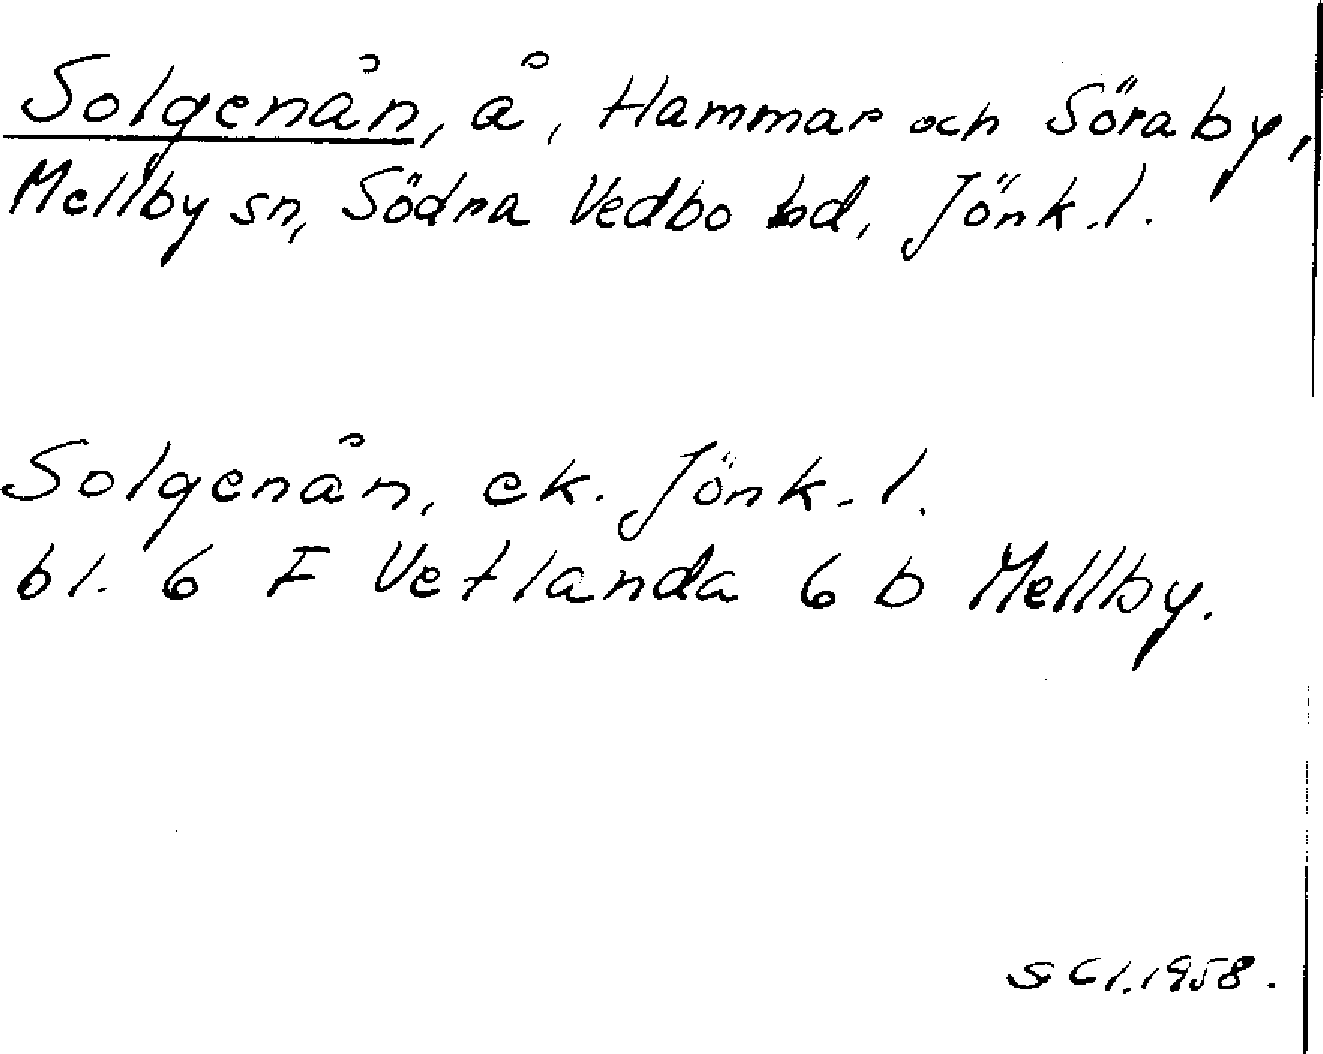 Solgenån, å, Hammar och Söraby,
Mellby sn, Södra Vedbo hd, Jönk.l.
Solgenån, ek. Jönk.l.
bl. 6 F Vetlanda 6 b Mellby.
S Cl. 1958.